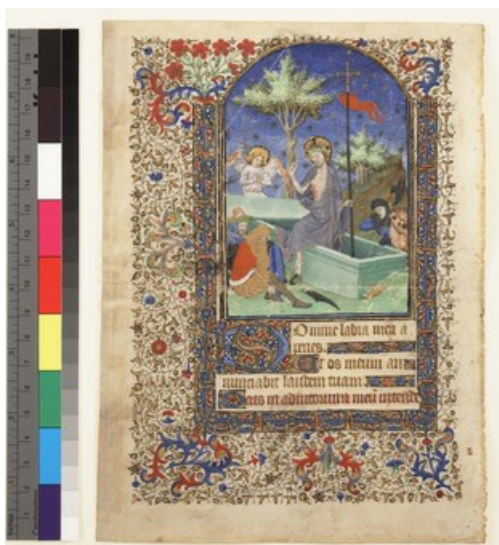 Domine labia mea a
peries.
Et os meum an
nunciabit laudem tuam
Deus in adiutorium meū intende